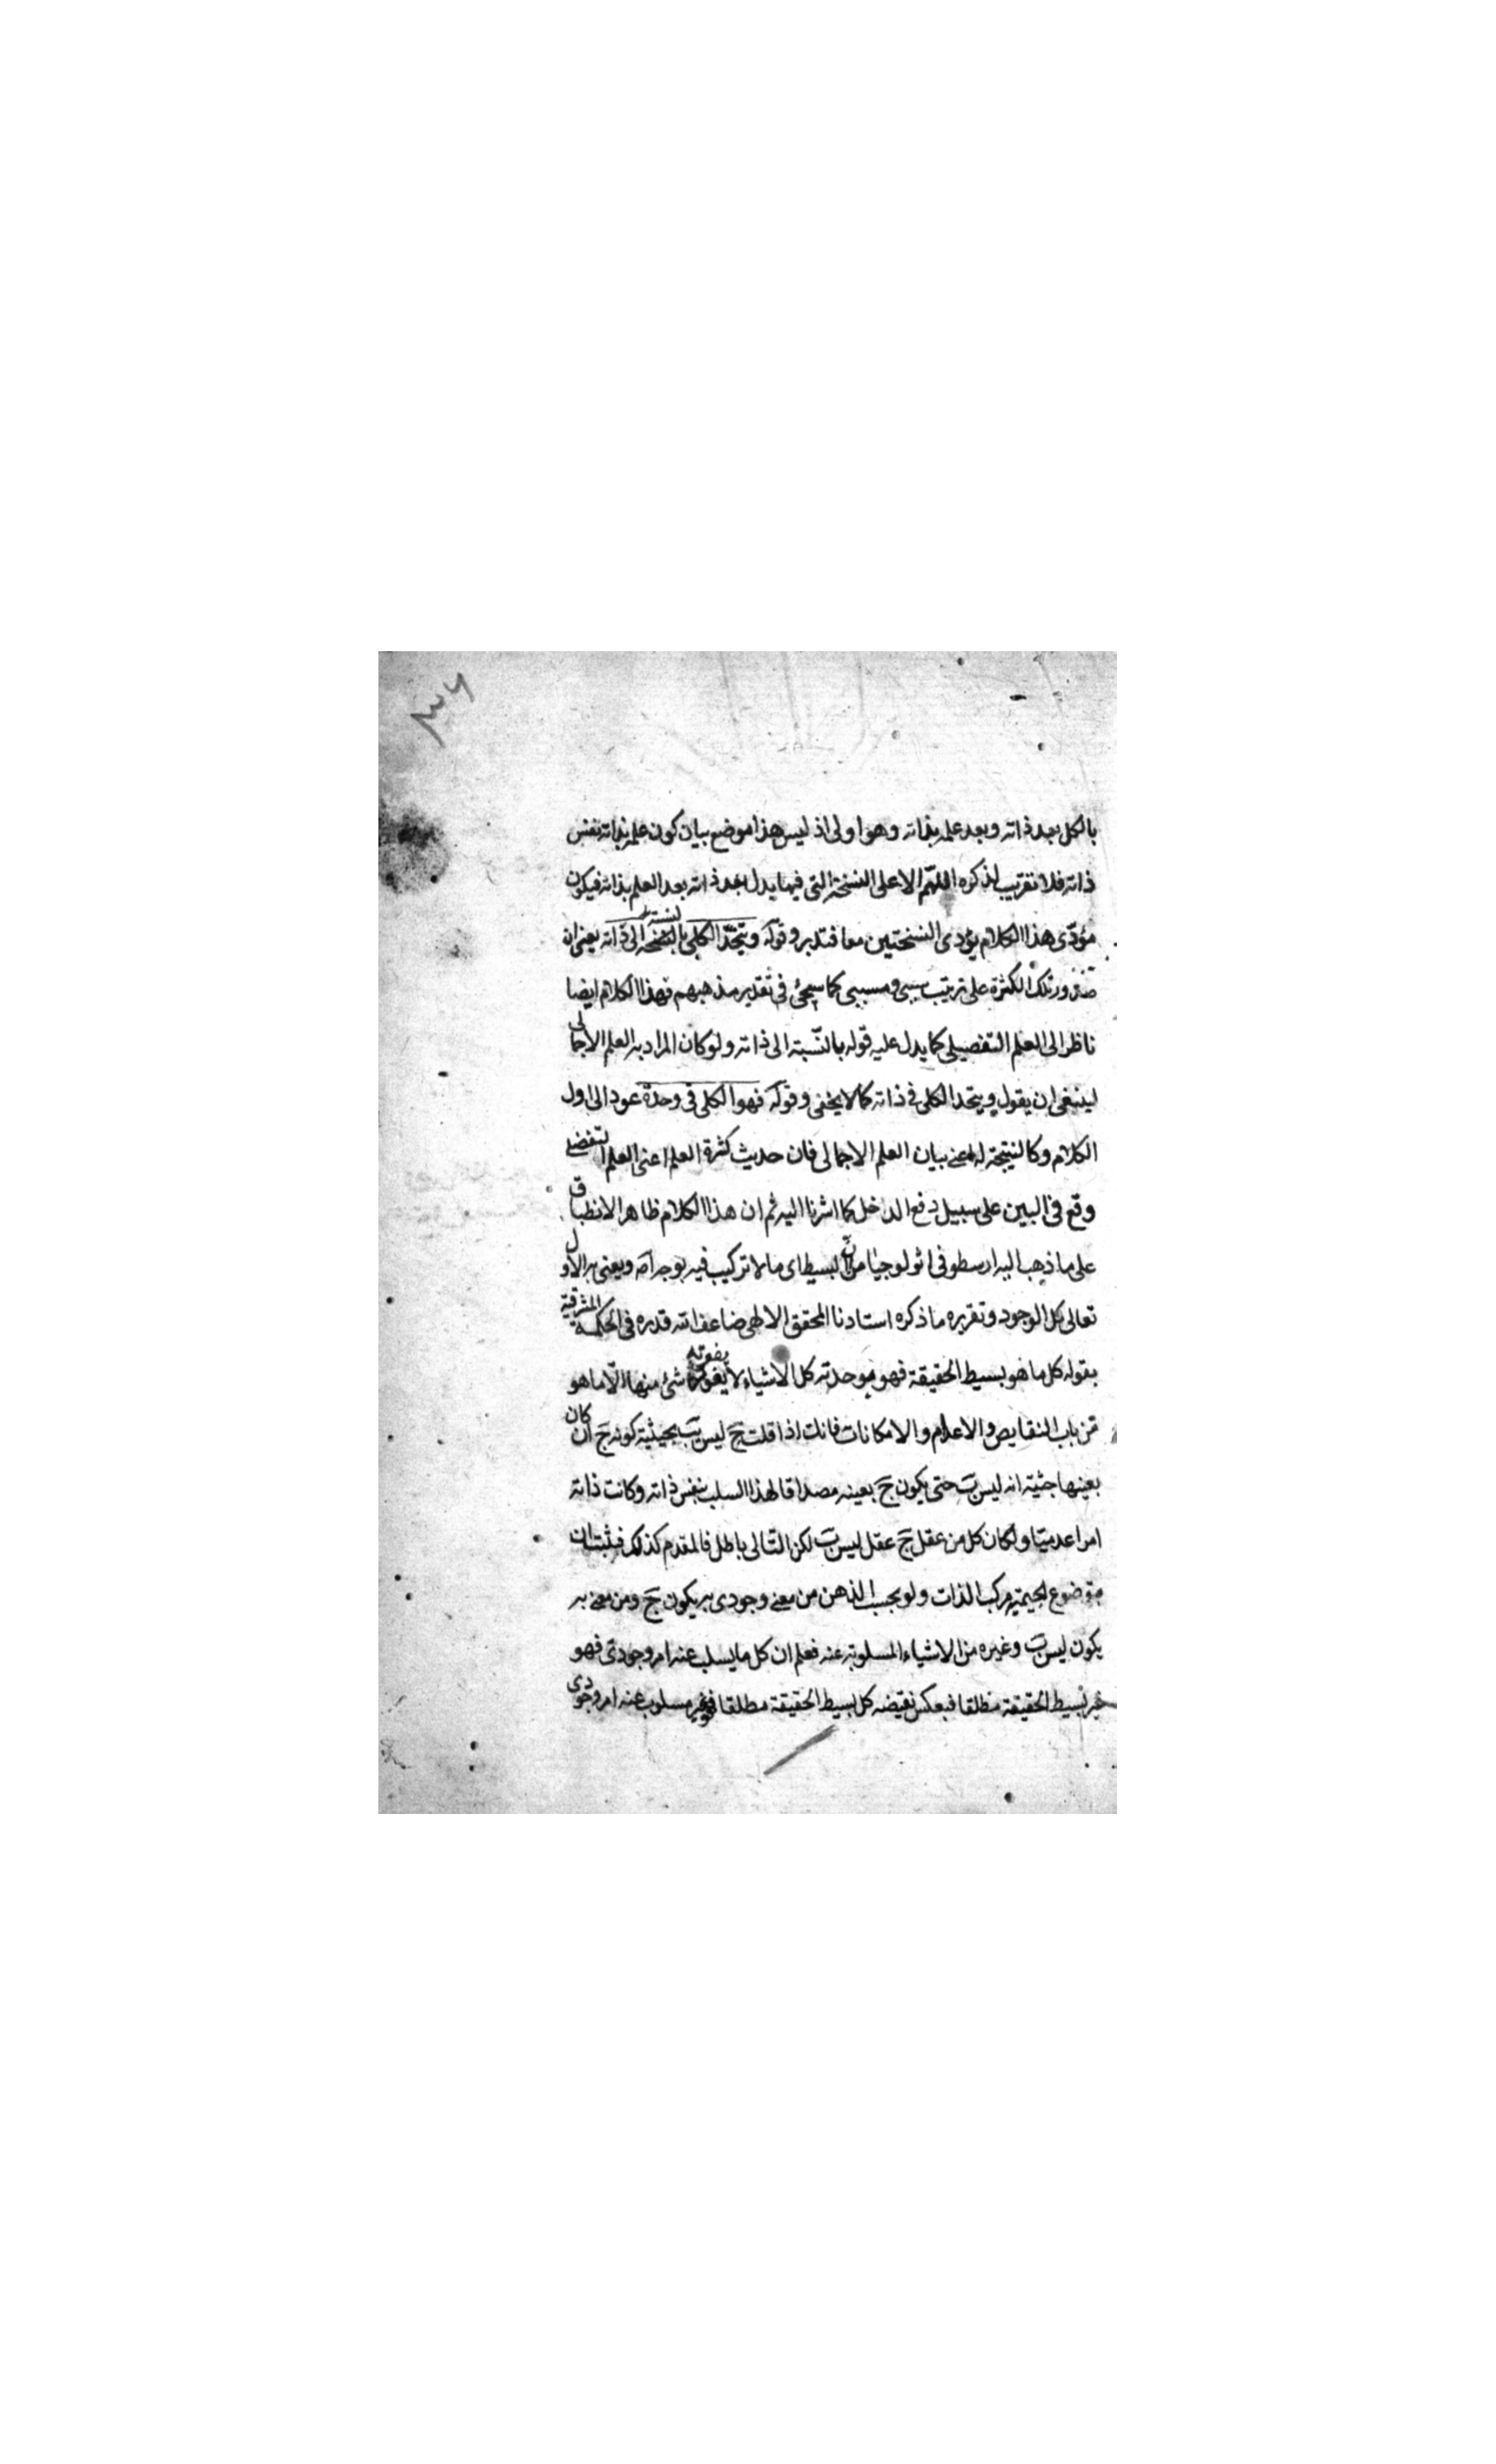 ٣٦
بالكل بعد ذاته وبعد علمه بذاته وهو اولى اذ ليس هذا موضع بيان كون علمه بذاته نفس
ذاته فلا تقريب لذكره اللهم الا على النسخة التى فيها يدل بعد ذاته بعد العلم بذاته فيكون
مؤدى هذا الكلام يؤدى النسختين معا فتدبر وقوله ويتحد الكلى بالنسبة الى ذاته يعنى ان
صدور تلك الكثرة على ترتيب سببى ومسببى كما سيجئ فى تقدير مذهبهم فهذا الكلام ايضا
ناظر الى العلم التفصيلى كما يدل عليه قوله بالنسبة الى ذاته ولو كان المراد به العلم الاجمالى
لينبغى ان يقول ويتحد الكلى فى ذاته كما لا يخفى وقوله فهو الكلى فى وحدة عود الى اول
الكلام وكالنتيجة له اعنى بيان العلم الاجمالى فان حديث كثرة العلم اعنى العلم التفصيلى
وقع فى البين على سبيل دفع الداخل كما اشرنا اليه ثم ان هذا الكلام ظاهر الانطباق
على ما ذهب اليه ارسطو فى اثولوجيا من ان البسيط اى ما لا تركيب فيه بوجه اصلا ويعنى به الاول
تعالى كل الوجود وتقريره ما ذكره استادنا المحقق الالهى ضاعف الله قدره فى الحكمة المشرقية
بقوله كل ما هو بسيط الحقيقة فهو بوحدته كل الاشياء لا يفوته شئ منها الا ما هو
من باب النقايص والاعدام والامكانات فانك اذا قلت ج ليس ب بحيثية كونه ج ان كان
بعينها حيثية انه ليس ب حتى يكون ج بعينه مصداقا لهذا السلب بنفس ذاته وكانت ذاته
امرا عدميا ولكان كل من عقل ج عقل ليس ب لكن التالى باطل فالمقدم كذلك فثبت ان
موضوع الجيمية مركب الذات ولو بحسب الذهن من معنى وجودى به يكون ج ومن معنى به
يكون ليس ب وغيره من الاشياء المسلوبة عنه فعلم ان كل ما يسلب عنه امر وجودى فهو
غير بسيط الحقيقة مطلقا فبعكس نقيضه كل بسيط الحقيقة مطلقا فهو غير مسلوب عنه امر وجودى